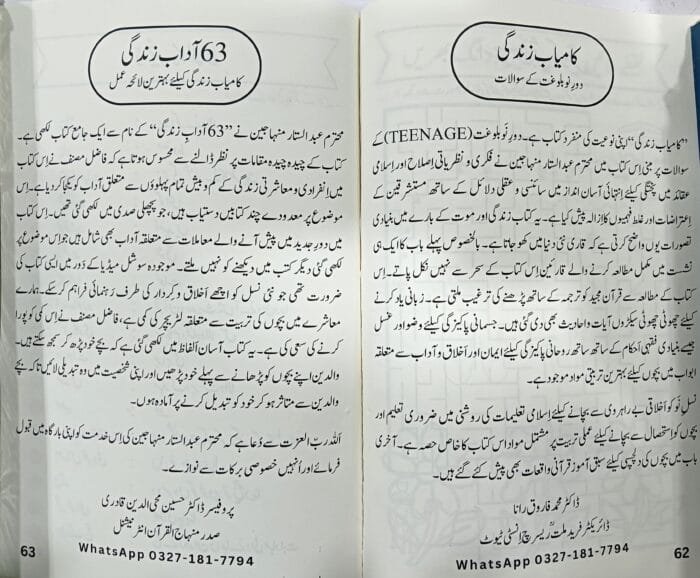 کامیاب زندگی
دورِ نوبلوغت کے سوالات
”کامیاب زندگی“ اپنی نوعیت کی منفرد کتاب ہے۔ دورِ نَوبلوغت (TEENAGE) کے
سوالات پر مبنی اِس کتاب میں محترم عبدالستار منہاجین نے فکری و نظریاتی اِصلاح اور اِسلامی
عقائد میں پختگی کیلئے اِنتہائی آسان انداز میں سائنسی و عقلی دلائل کے ساتھ مستشرقین کے
اِعتراضات اور غلط فہمیوں کا اِزالہ پیش کیا ہے۔ یہ کتاب زندگی اور موت کے بارے میں بنیادی
تصورات یوں واضح کرتی ہے کہ قاری نئی دنیا میں کھو جاتا ہے۔ بالخصوص پہلے باب کا ایک ہی
نشست میں مکمل مطالعہ کرنے والے قارئین اِس کتاب کے سحر سے نہیں نکل پاتے۔ اِس
کتاب کے مطالعہ سے قرآن مجید کو ترجمہ کے ساتھ پڑھنے کی ترغیب ملتی ہے۔ زبانی یاد کرنے
کیلئے چھوٹی چھوٹی سیکڑوں آیات و احادیث بھی دی گئی ہیں۔ جسمانی پاکیزگی کیلئے وضو اور غسل
جیسے بنیادی فقہی اَحکام کے ساتھ ساتھ روحانی پاکیزگی کیلئے ایمان اور اَخلاق و آداب سے متعلقہ
ابواب میں بچوں کیلئے بہترین تربیتی مواد موجود ہے۔
نسلِ نَو کو اَخلاقی بے راہروی سے بچانے کیلئے اِسلامی تعلیمات کی روشنی میں ضروری تعلیم اور
بچوں کو اِستحصال سے بچانے کیلئے عملی تربیت پر مشتمل مواد اس کتاب کا خاص حصہ ہے۔ آخری
باب میں بچوں کی دلچسپی کیلئے سبق آموز قرآنی واقعات بھی پیش کئے گئے ہیں۔
ڈاکٹر محمد فاروق رانا
ڈائریکٹر فریدِ ملتؒ ریسرچ اِنسٹی ٹیوٹ
WhatsApp 0327-181-7794
62
63 آدابِ زندگی
کامیاب زندگی کیلئے بہترین لائحہ عمل
محترم عبدالستار منہاجین نے ”63 آدابِ زندگی“ کے نام سے ایک جامع کتاب لکھی ہے۔
کتاب کے چیدہ چیدہ مقامات پر نظر ڈالنے سے محسوس ہوتا ہے کہ فاضل مصنف نے اِس کتاب
میں اِنفرادی و معاشرتی زندگی کے کم و بیش تمام پہلوؤں سے متعلق آداب کو یکجا کر دیا ہے۔ اِس
موضوع پر معدودے چند کتابیں دستیاب ہیں، جو پچھلی صدی میں لکھی گئی تھیں۔ اِس کتاب
میں دورِ جدید میں پیش آنے والے معاملات سے متعلقہ آداب بھی شامل ہیں جو اِس موضوع پر
لکھی گئی دیگر کتب میں دیکھنے کو نہیں ملتے۔ موجودہ سوشل میڈیا کے دَور میں ایسی کتاب کی
ضرورت تھی جو نئی نسل کو اچھے اَخلاق و کردار کی طرف رہنمائی فراہم کر سکے۔ ہمارے
معاشرے میں بچوں کی تربیت سے متعلقہ لٹریچر کی کمی ہے، فاضل مصنف نے اِس کمی کو پورا
کرنے کی سعی کی ہے۔ یہ کتاب آسان اَلفاظ میں لکھی گئی ہے کہ بچے خود پڑھ کر سمجھ سکتے ہیں۔
والدین اپنے بچوں کو پڑھانے سے پہلے خود پڑھیں اور اپنی شخصیت میں وہ تبدیلی لائیں تاکہ بچے
والدین سے متاثر ہو کر خود کو تبدیل کرنے پر آمادہ ہوں۔
اللہ ربّ العزت سے دُعا ہے کہ محترم عبدالستار منہاجین کی اِس خدمت کو اپنی بارگاہ میں قبول
فرمائے اور اُنہیں خصوصی برکات سے نوازے۔
پروفیسر ڈاکٹر حسین محی الدین قادری
صدر منہاج القرآن انٹرنیشنل
WhatsApp 0327-181-7794
63